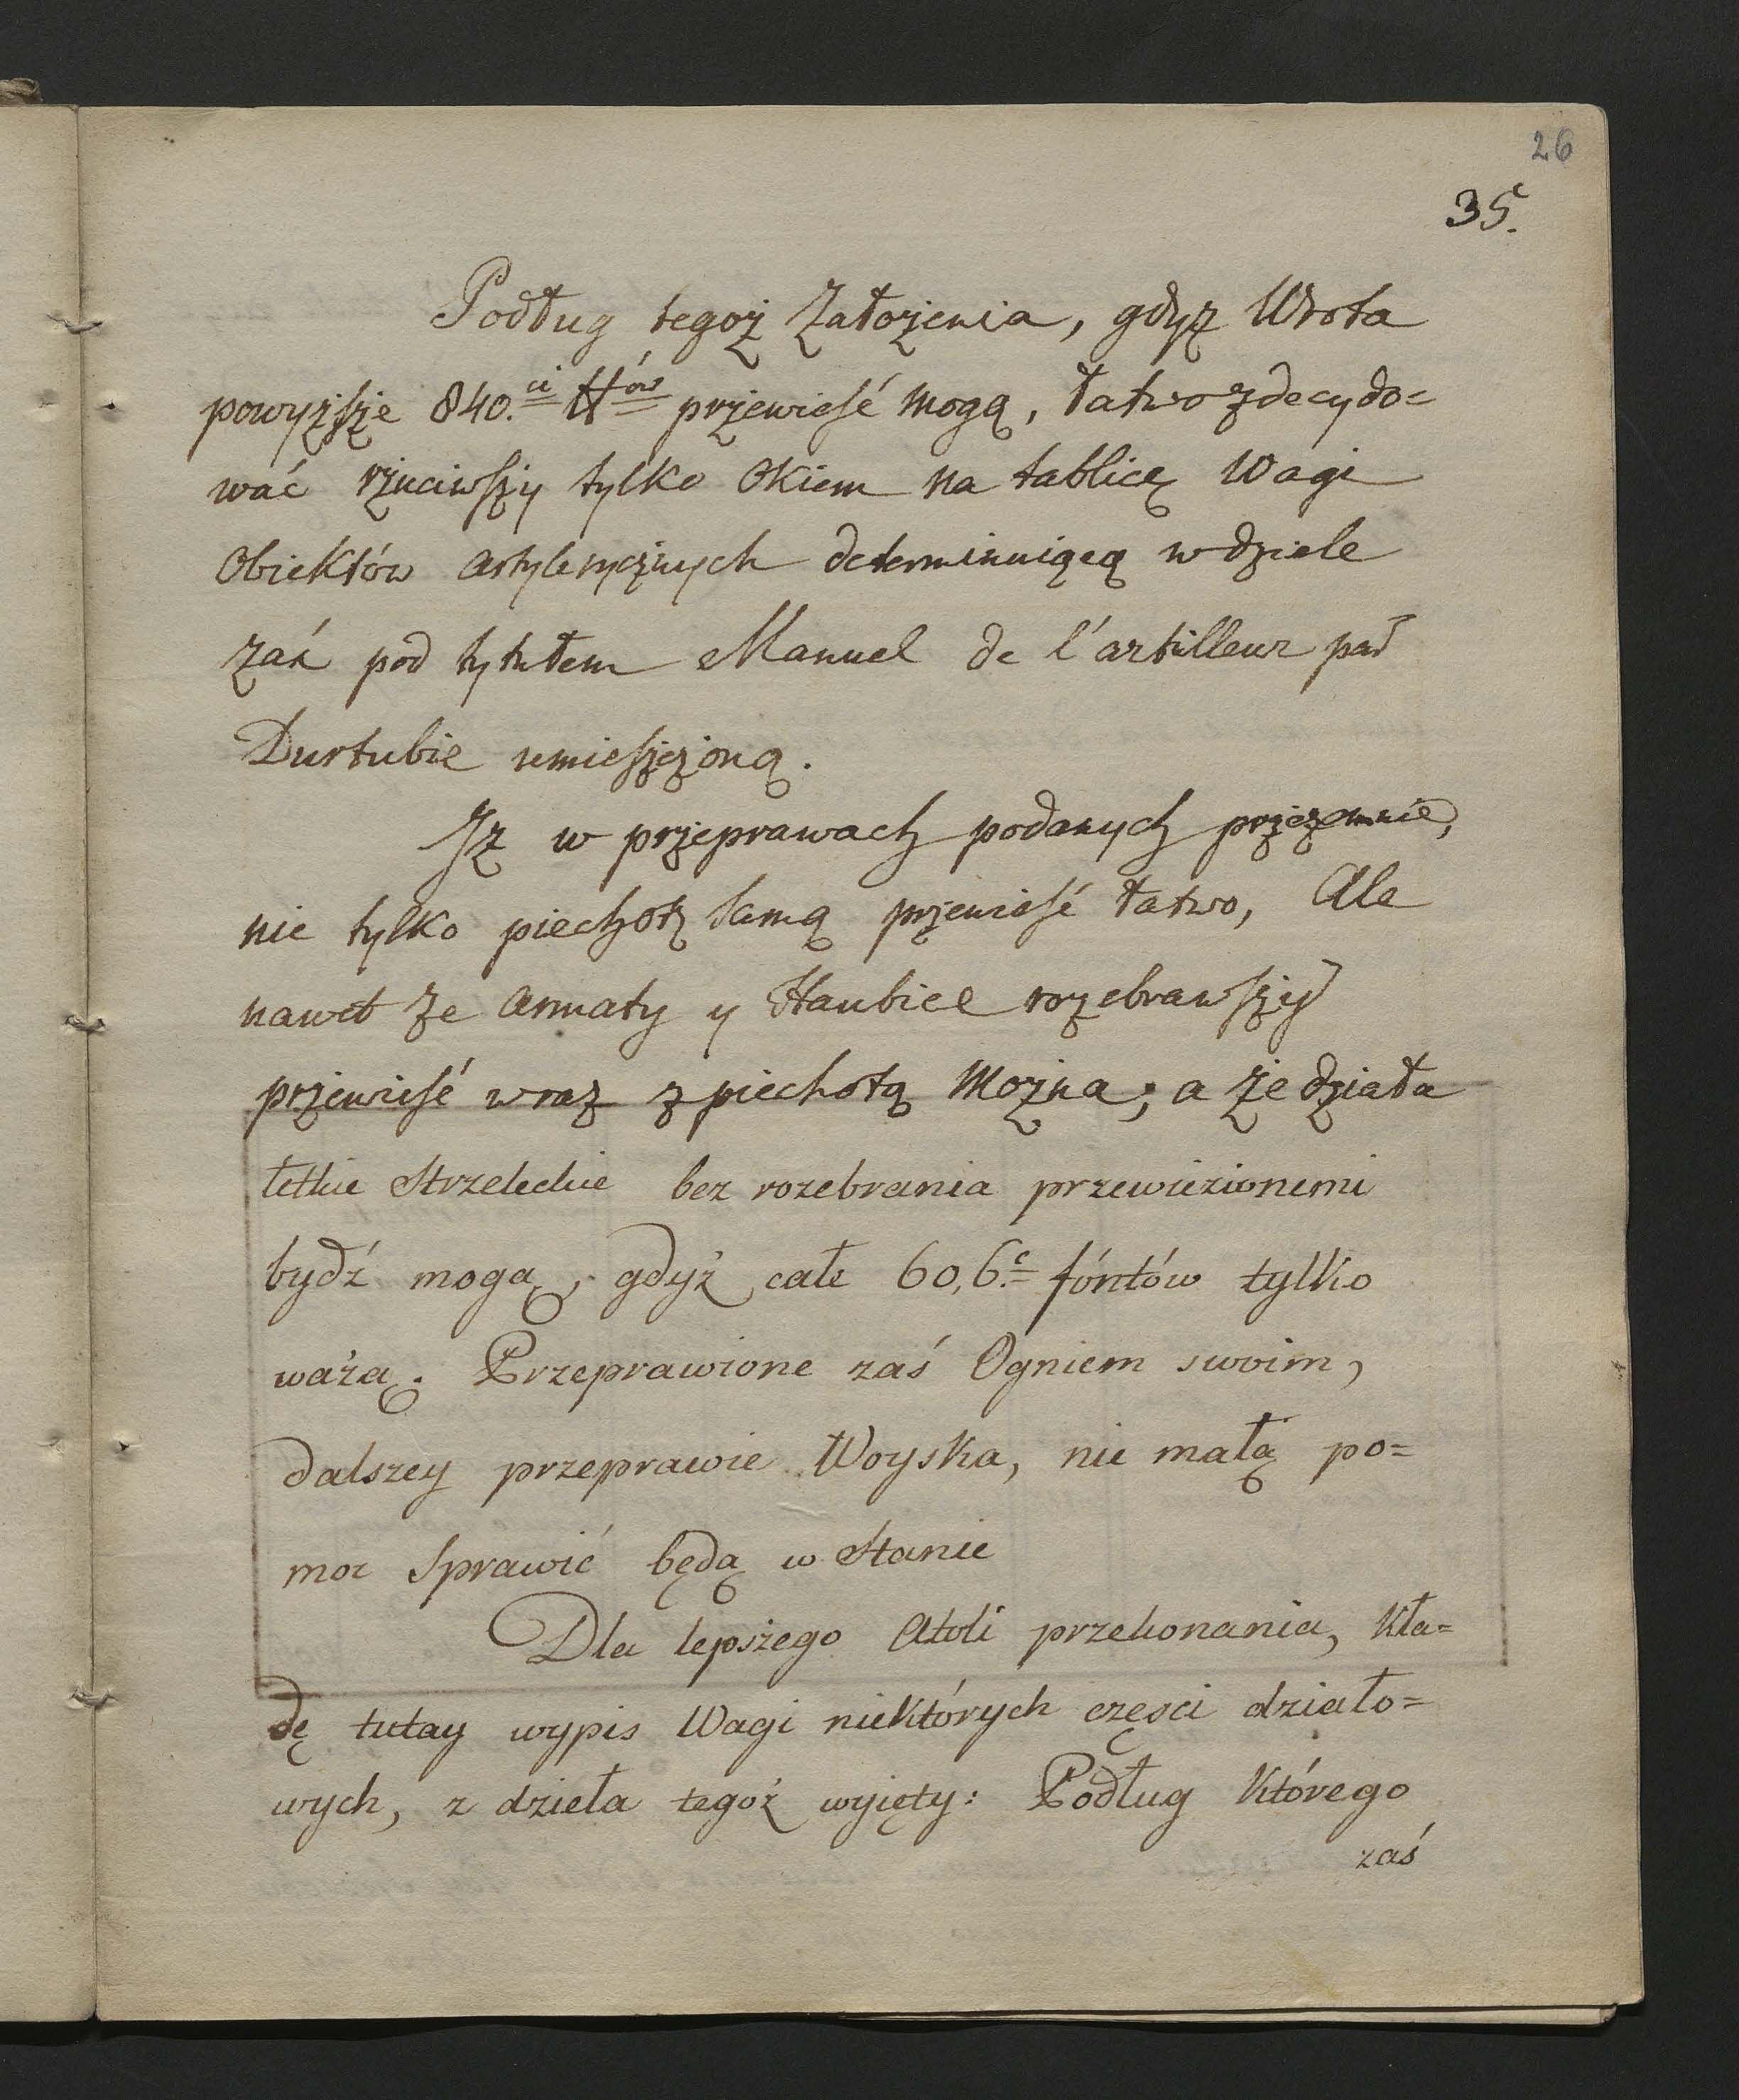 26
35.
Podług tegoż Założenia, gdyż Wrota
powyższe 840.ci ℔ów przewieść mogą, łatwo zdecydo=
wać rzuciwszy tylko Okiem na tablicę Wagi
Obiektów artylerycznych determinuiącą w dziele
zaś pod tytułem Manuel de l'artilleur par
Durtubie umieszczoną.
Jż w przeprawach podanych przezemnie,
nie tylko piechotę samą przewieść łatwo, Ale
nawet że armaty y Haubice rozebrawszy
przewieść wraz z piechotą można; a że działa
letkie Strzeleckie bez rozebrania przewiezionemi
bydź mogą, gdyż całe 60,6.c fóntów tylko
ważą. Przeprawione zaś Ogniem swoim,
dalszey przeprawie Woyska, nie małą po=
moc Sprawić będą w Stanie
Dla lepszego Atoli przekonania, Kła=
dę tutay wypis Wagi niektórych częsci działo=
wych, z dzieła tegoż wyięty: Podług Którego
zaś